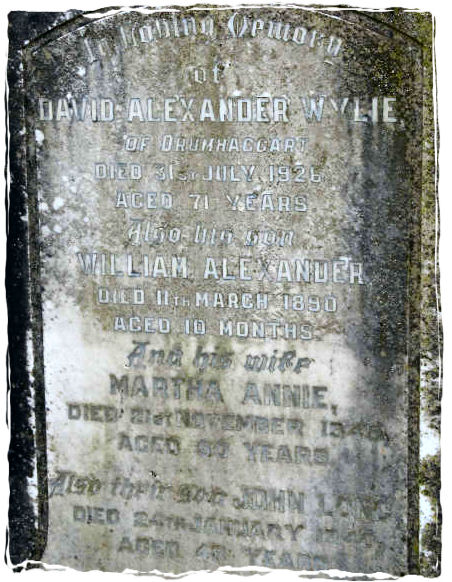 In Loving Memory
of
DAVID ALEXANDER WYLIE,
OF DRUMHAGGART
DIED 31ST JULY, 1926
AGED 71 YEARS
Also his son
WILLIAM ALEXANDER
DIED 11TH MARCH 1890
AGED 10 MONTHS.
And his wife
MARTHA ANNIE,
DIED 21ST NOVEMBER
AGED YEARS
Also their son JOHN
DIED 24TH JANUARY
AGED YEARS